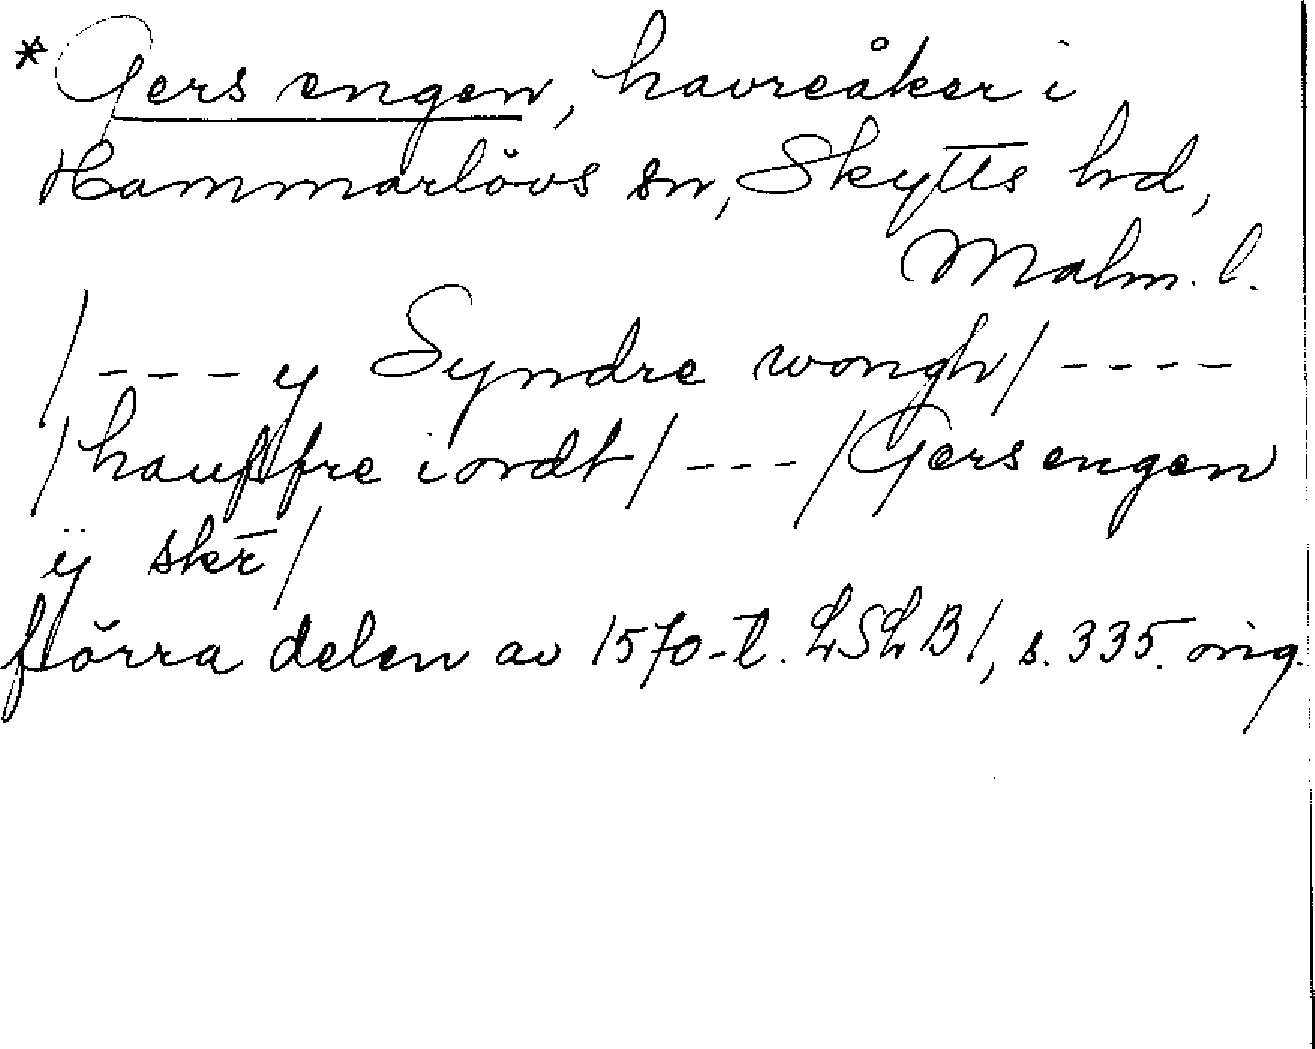 * Gers engen, havreåker i
Hammarlövs sn, Skytts hd,
Malm. l.
/ - - - y Syndre wongh/ - - - -
/hauffre iordt/ - - - /Gersengen
ÿ skr̄/
förra delen av 1570-t. LSLB1, s. 335. orig.